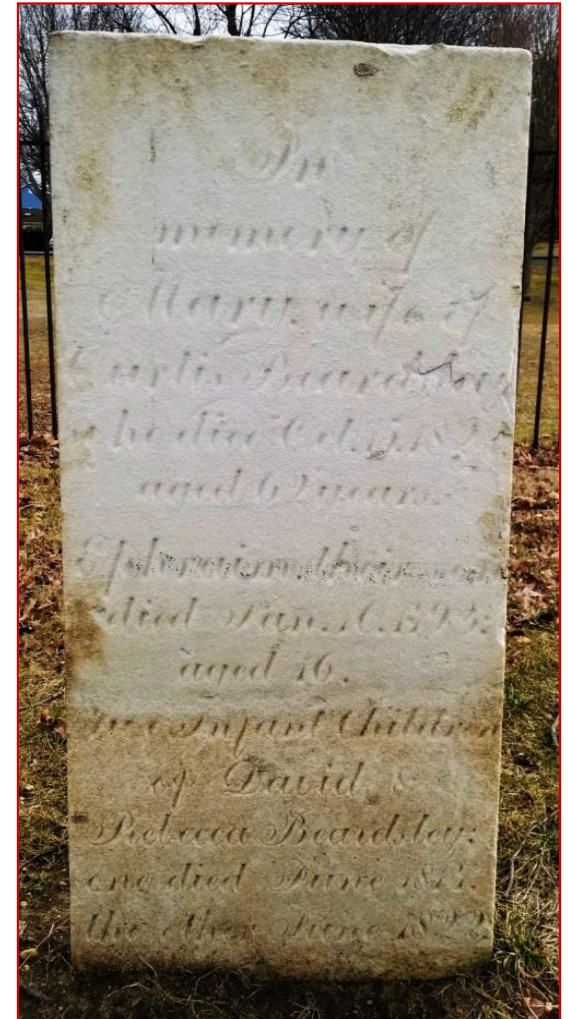 In
memory of
Mary, wife of
Curtis Beardsley
who died Oct.
aged 62 years.
Ephraim their son
died Jan. 16.
aged 16.
Two Infant Children
of David &
Rebecca Beardsley:
one died June
the other June 1822